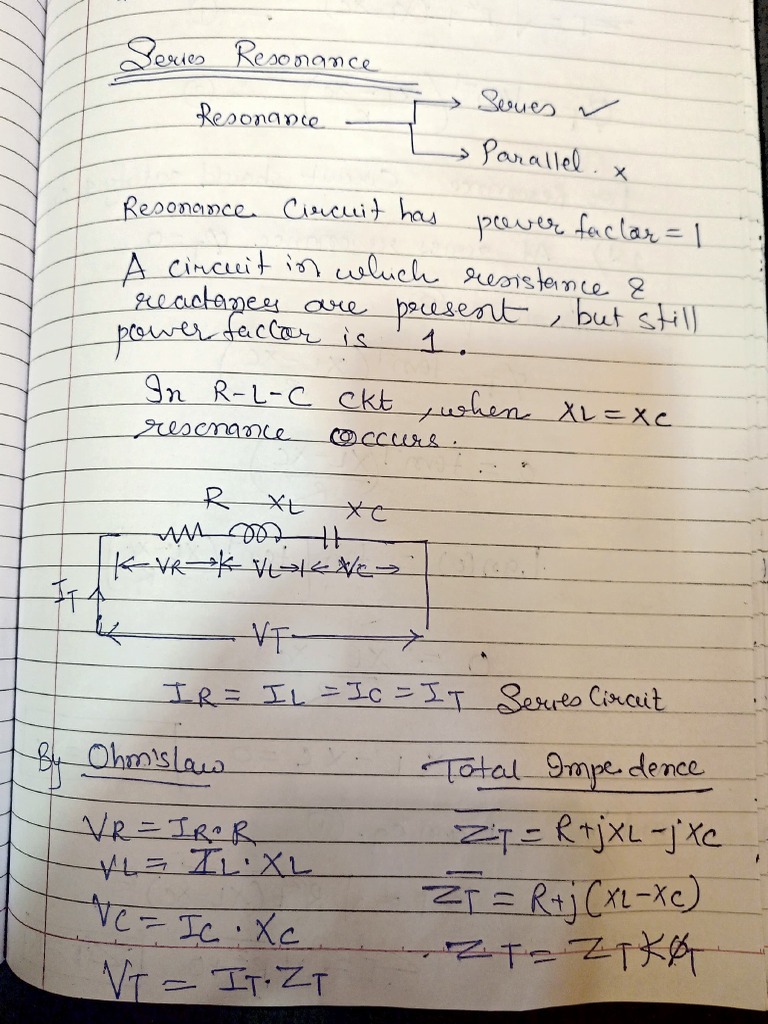 Series Resonance
Resonance
Series ✓
Parallel. x
Resonance Circuit has power factor = 1
A circuit in which resistance &
reactances are present, but still
power factor is 1.
In R-L-C ckt, when XL = XC
resonance occurs.
R XL XC
VR VL VC
IT
VT
IR = IL = IC = IT Series Circuit
By Ohm's law
VR = IR . R
VL = IL . XL
VC = IC . XC
VT = IT . ZT
Total Impedence
Z̅T = R+jXL-jXC
Z̅T = R+j(XL-XC)
Z̅T = ZT ∠ØT